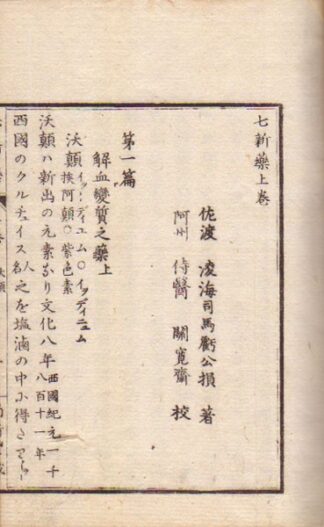 七新藥上巻
佐渡 凌海司馬虧公損 著
阿州 侍醫 關寛齋 校
第一篇
解血變質之藥上
沃顛
挨阿顛〇紫色素
沃顛ハ新出の元素なり文化八年西國紀元一千八百十一年
西國のクルチュイス人名之を塩滷の中小得